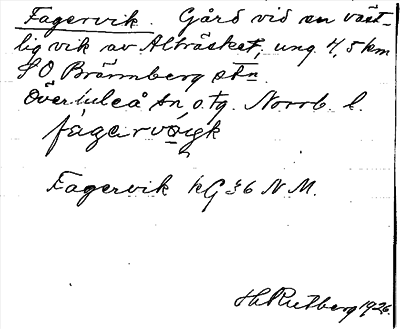 Fagervik. Gård vid en väst-
lig vik av Alträsket, ung. 4,5 km
SO Brännberg stn.
Överluleå sn, o. tg. Norrb. l.
fágarvọ̀ɪk
Fagervik kG36 N M.
H. Rutberg 1926.